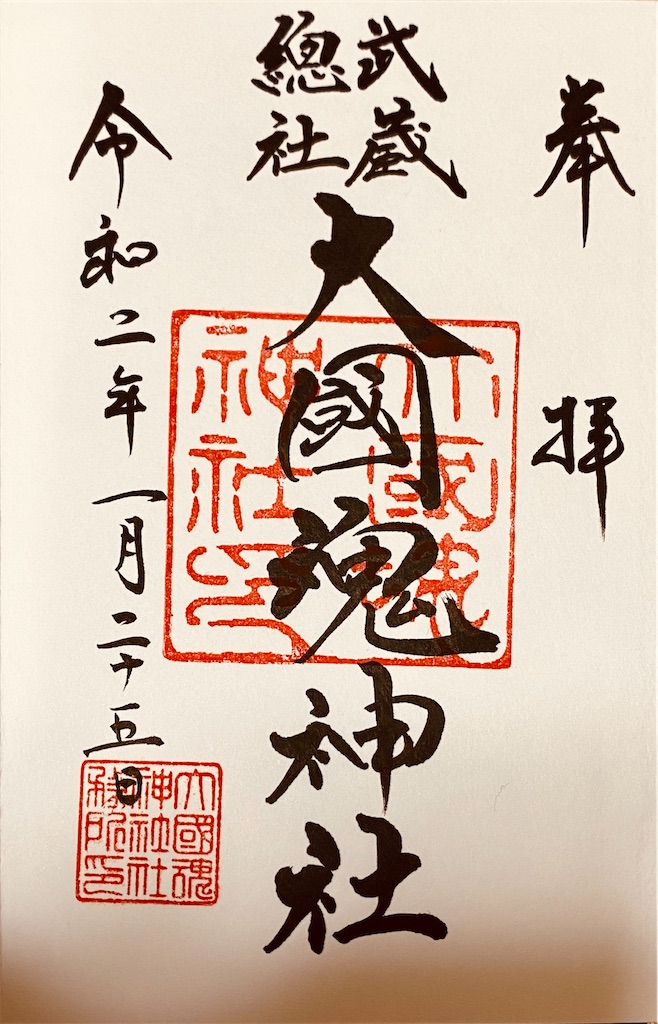 奉拝
武蔵
總社
大國魂神社
令和二年一月二十五日
大國魂
神社印
大國魂
神社社
務所印